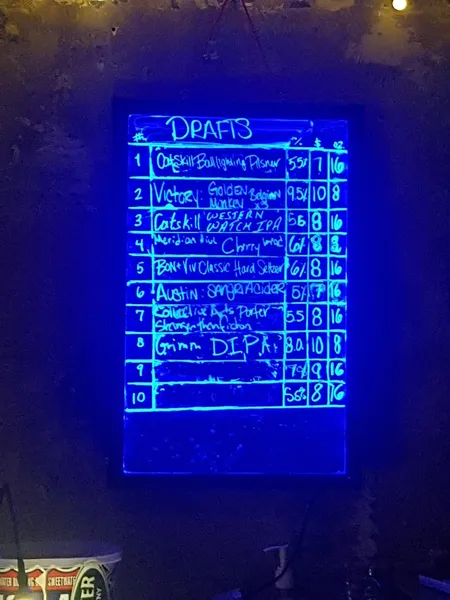 DRAFTS
#. % $ oz
1 Catskill Ball Lightning Pilsner 5.5% 7 16
2 Victory: Golden Monkey Belgian 9.5% 10 8
3 Catskill WESTERN WATCH IPA 5.6 8 16
4 Meridian Hive Cherry 6% 8
5 Bon+Viv Classic Hard Seltzer 6% 8 16
6 Austin: SANGRIA CIDER 5% 7 16
7 Collective Arts Porter 5.5 8 16
Stranger than fiction
8 Grimm D.I.P.A 8.0 10 8
9 7% 9 16
10 5.5% 8 16
SWEETWATER